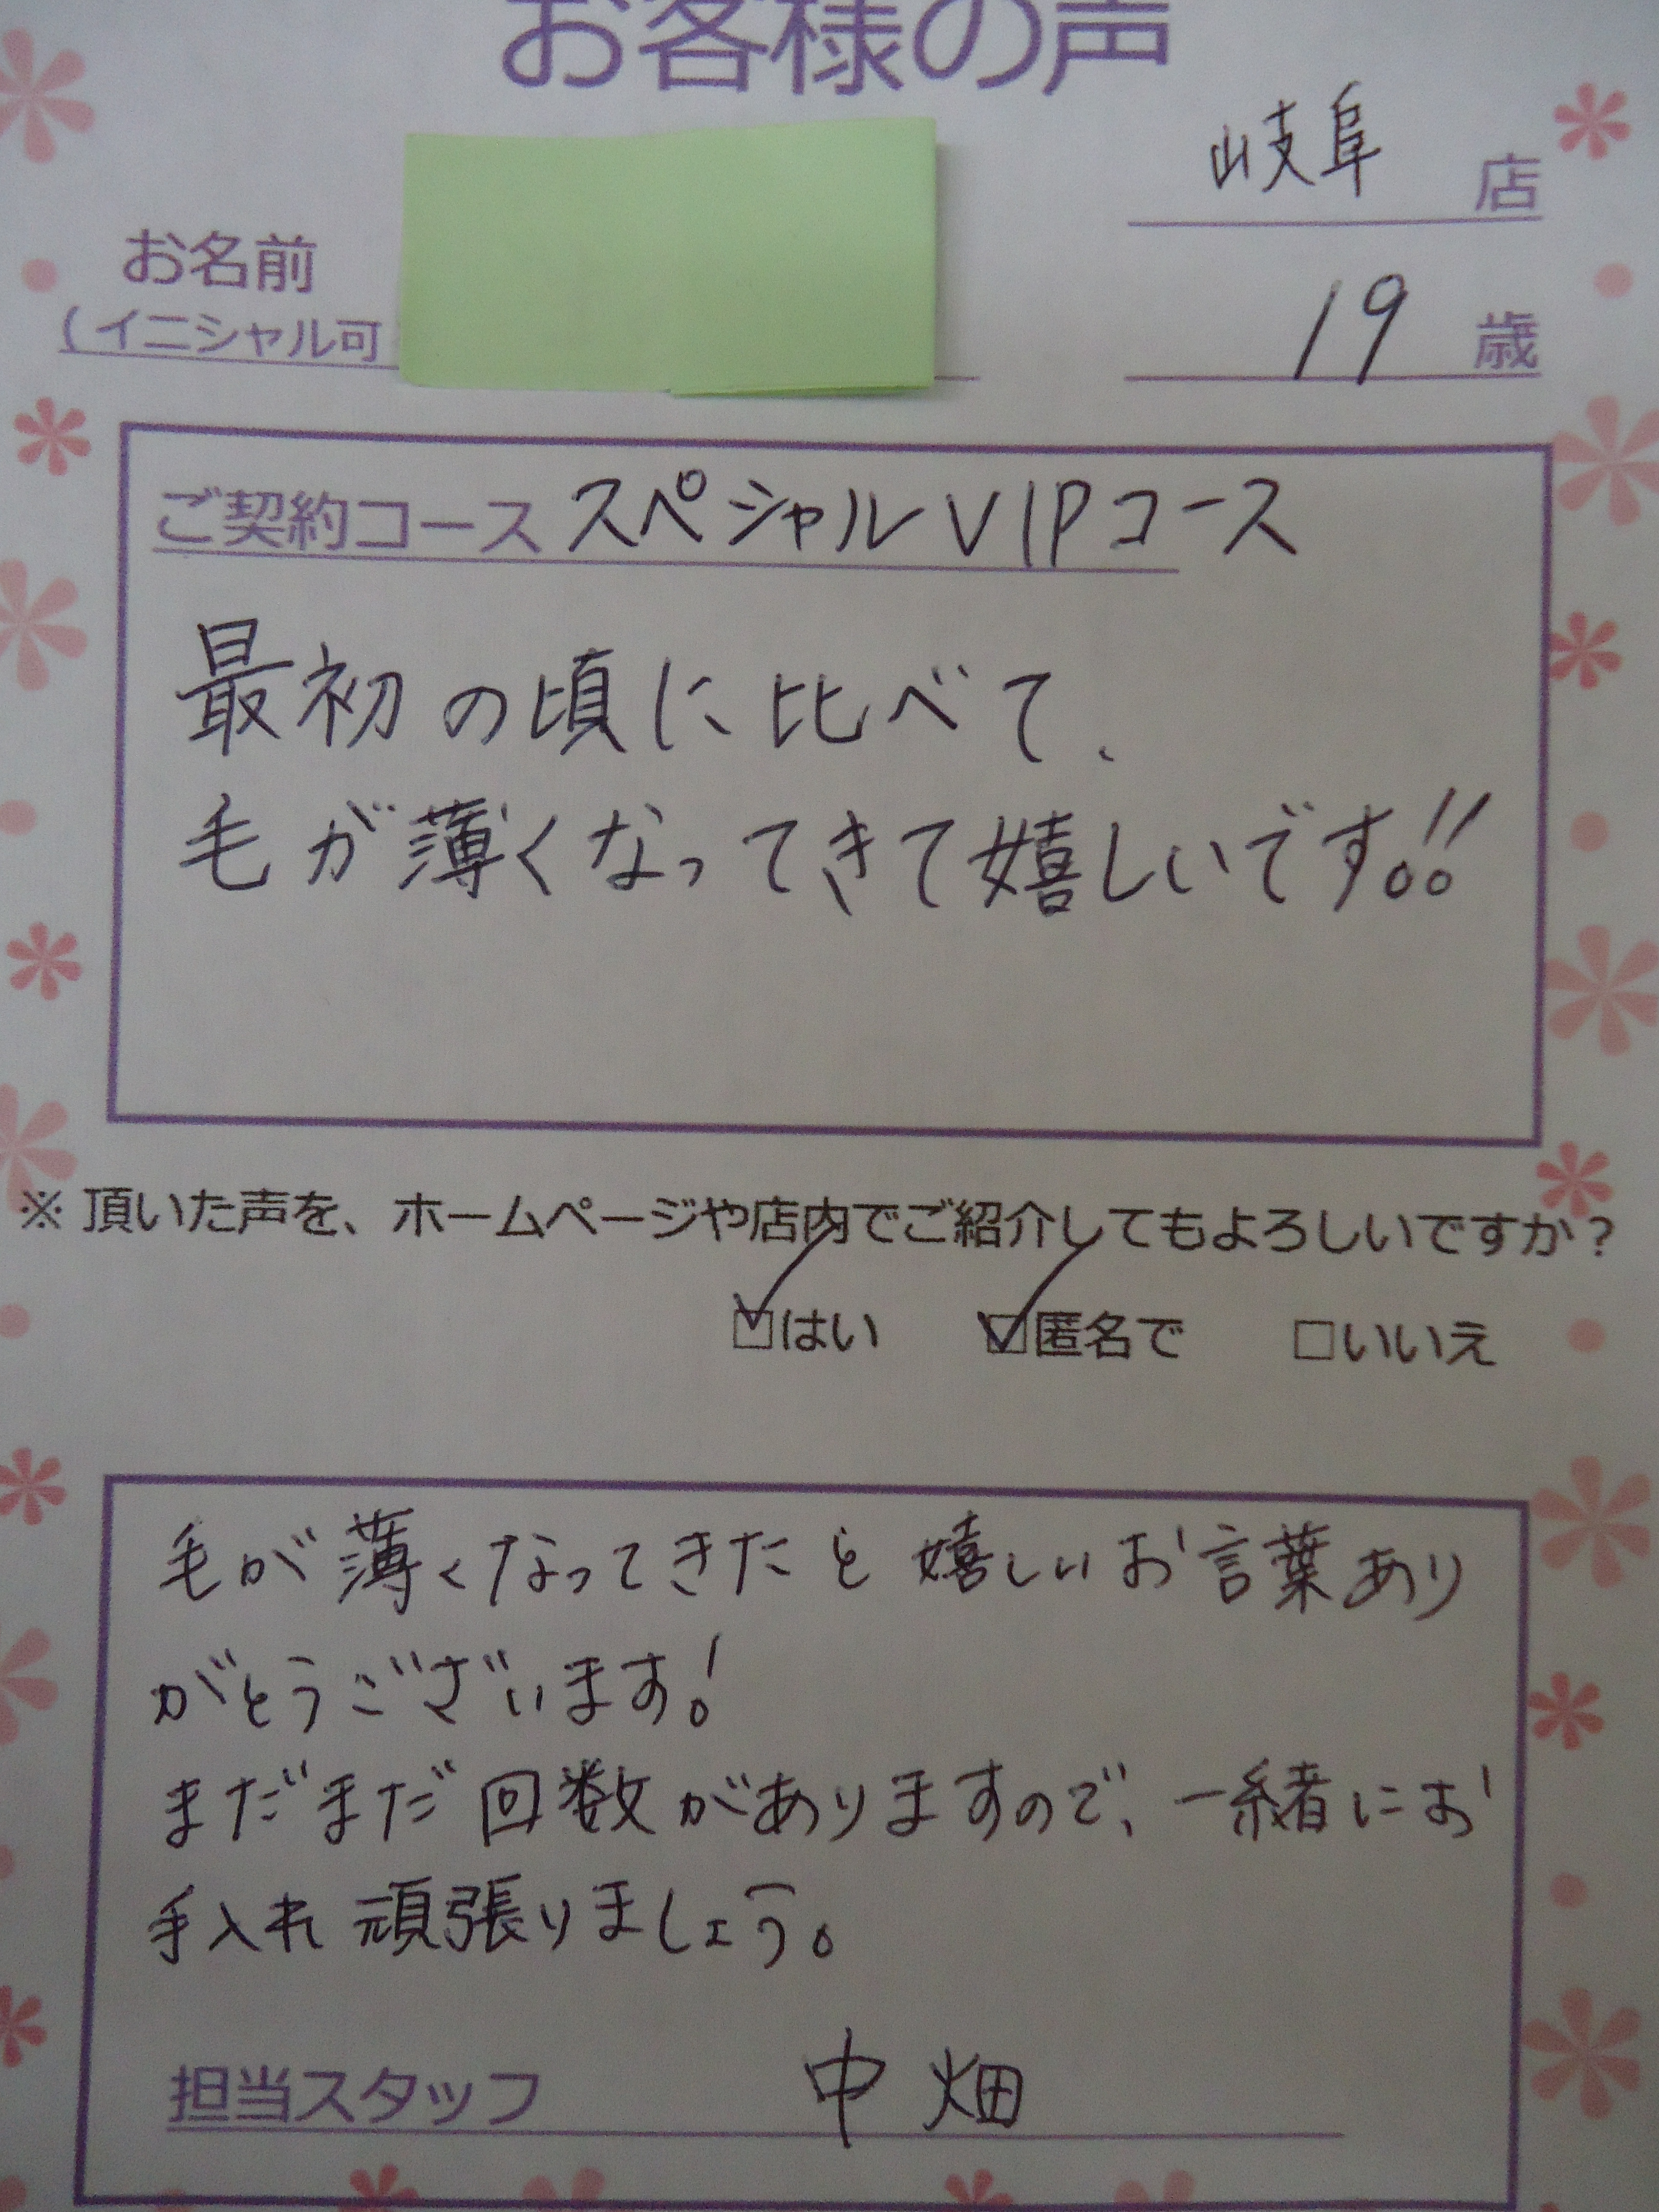 お客様の声
岐阜 店
お名前
(イニシャル可
19 歳
ご契約コース スペシャルVIPコース
最初の頃に比べて、
毛が薄くなってきて嬉しいです!!
※頂いた声を、ホームページや店内でご紹介してもよろしいですか?
☑はい ☑匿名で □いいえ
毛が薄くなってきたと嬉しいお言葉あり
がとうございます!
まだまだ回数がありますので、一緒にお
手入れ頑張りましょう。
担当スタッフ 中畑